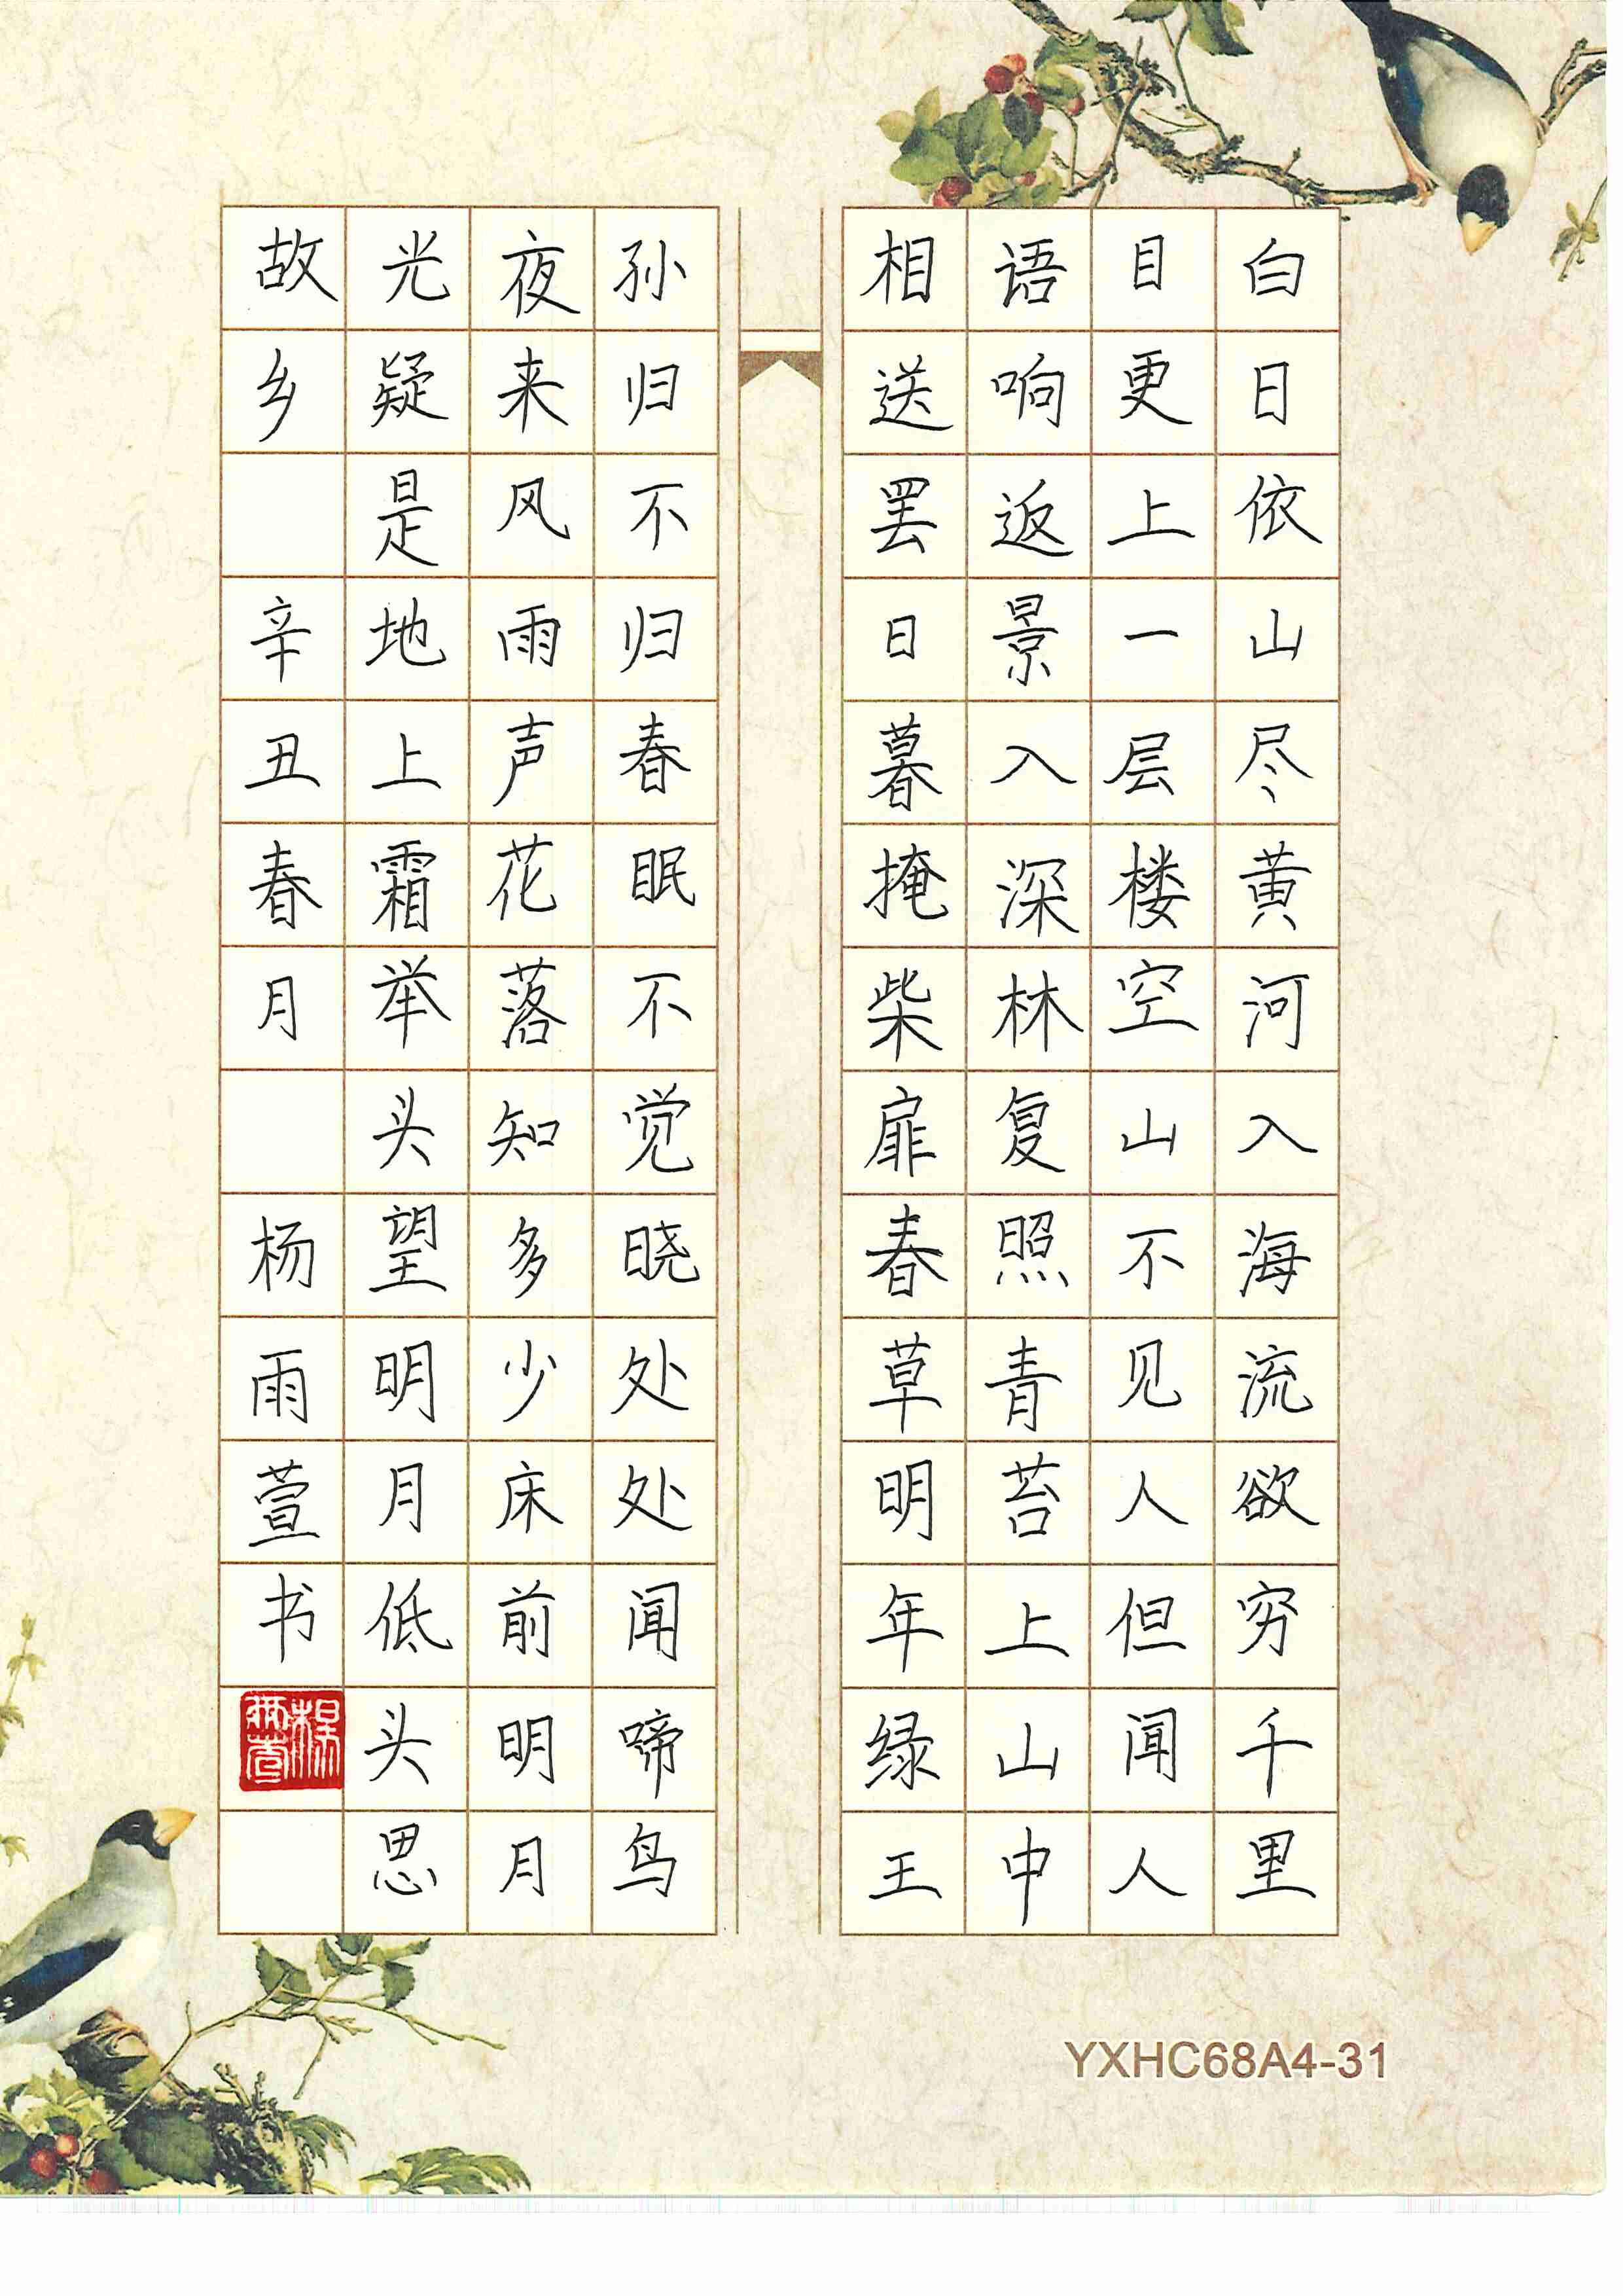 白日依山尽黄河入海流欲穷千里
目更上一层楼空山不见人但闻人
语响返景入深林复照青苔上山中
相送罢日暮掩柴扉春草明年绿王
孙归不归春眠不觉晓处处闻啼鸟
夜来风雨声花落知多少床前明月
光疑是地上霜举头望明月低头思
故乡 辛丑春月 杨雨萱书
杨雨萱
YXHC68A4-31